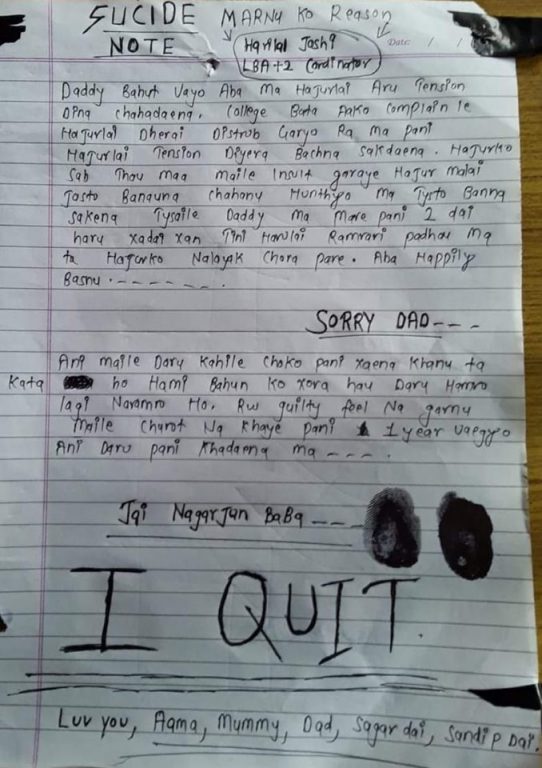 SUCIDE MARNU KO Reason
NOTE Harilal Joshi Date: / /
LBA+2 Cordinator
Daddy Bahut Vayo Aba Ma Hajurlai Aru Tension
Dina chahadaena. College Bata Aako complain le
Hajurlai Dherai Distrub Garyo Ra ma pani
Hajurlai Tension Diyera Bachna sakdaena. Hajurko
Sab Thau maa maile Insult garaye Hajur malai
Jasto Banauna chahanu Hunthyo Ma Tysto Banna
sakena Tysaile Daddy ma Mare pani 2 dai
haru xadai xan Tini Harulai Ramrari padhau Ma
ta Hajurko Nalayak Chora pare. Aba Happily
Basnu.-------
SORRY DAD---
Ani maile Daru Kahile choko pani xaena khanu ta
Kata ho Hami Bahun ko xora hau Daru Hamro
lagi Naramro Ho. Rw guilty feel Na garnu
Maile Churot Na khaye pani 1 year vaegyo
Ani Daru pani khadaena ma ---.
Jai Nagarjun BaBa ---
I QUIT.
Luv you, Aama, Mummy, Dad, Sagar dai, Sandip Dai.